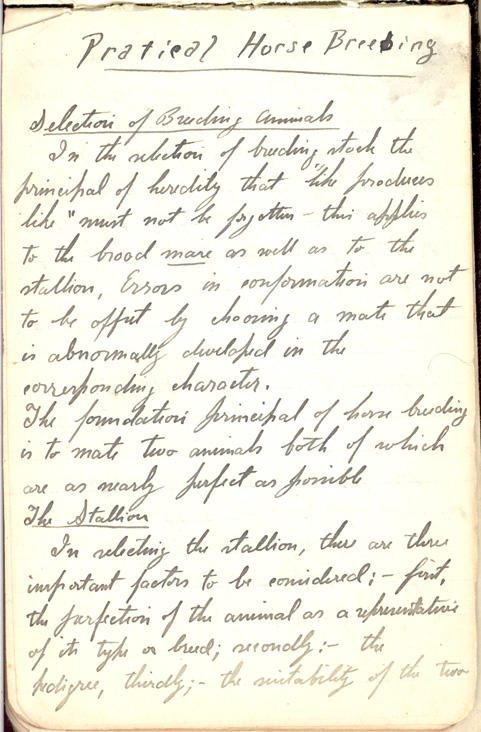 Pratical Horse Breeding
Selection of Breeding Animals
In the selection of breeding stock the
principal of heredity that "like produces
like" must not be forgotten - this applies
to the brood mare as well as to the
stallion, Errors in conformation are not
to be offset by choosing a mate that
is abnormally developed in the
corresponding character.
The foundation principal of horse breeding
is to mate two animals both of which
are as nearly perfect as possible
The Stallion
In selecting the stallion, there are three
important factors to be considered:- first,
the perfection of the animal as a representative
of its type or breed; secondly:- the
pedigree, thirdly;- the suitability of the two